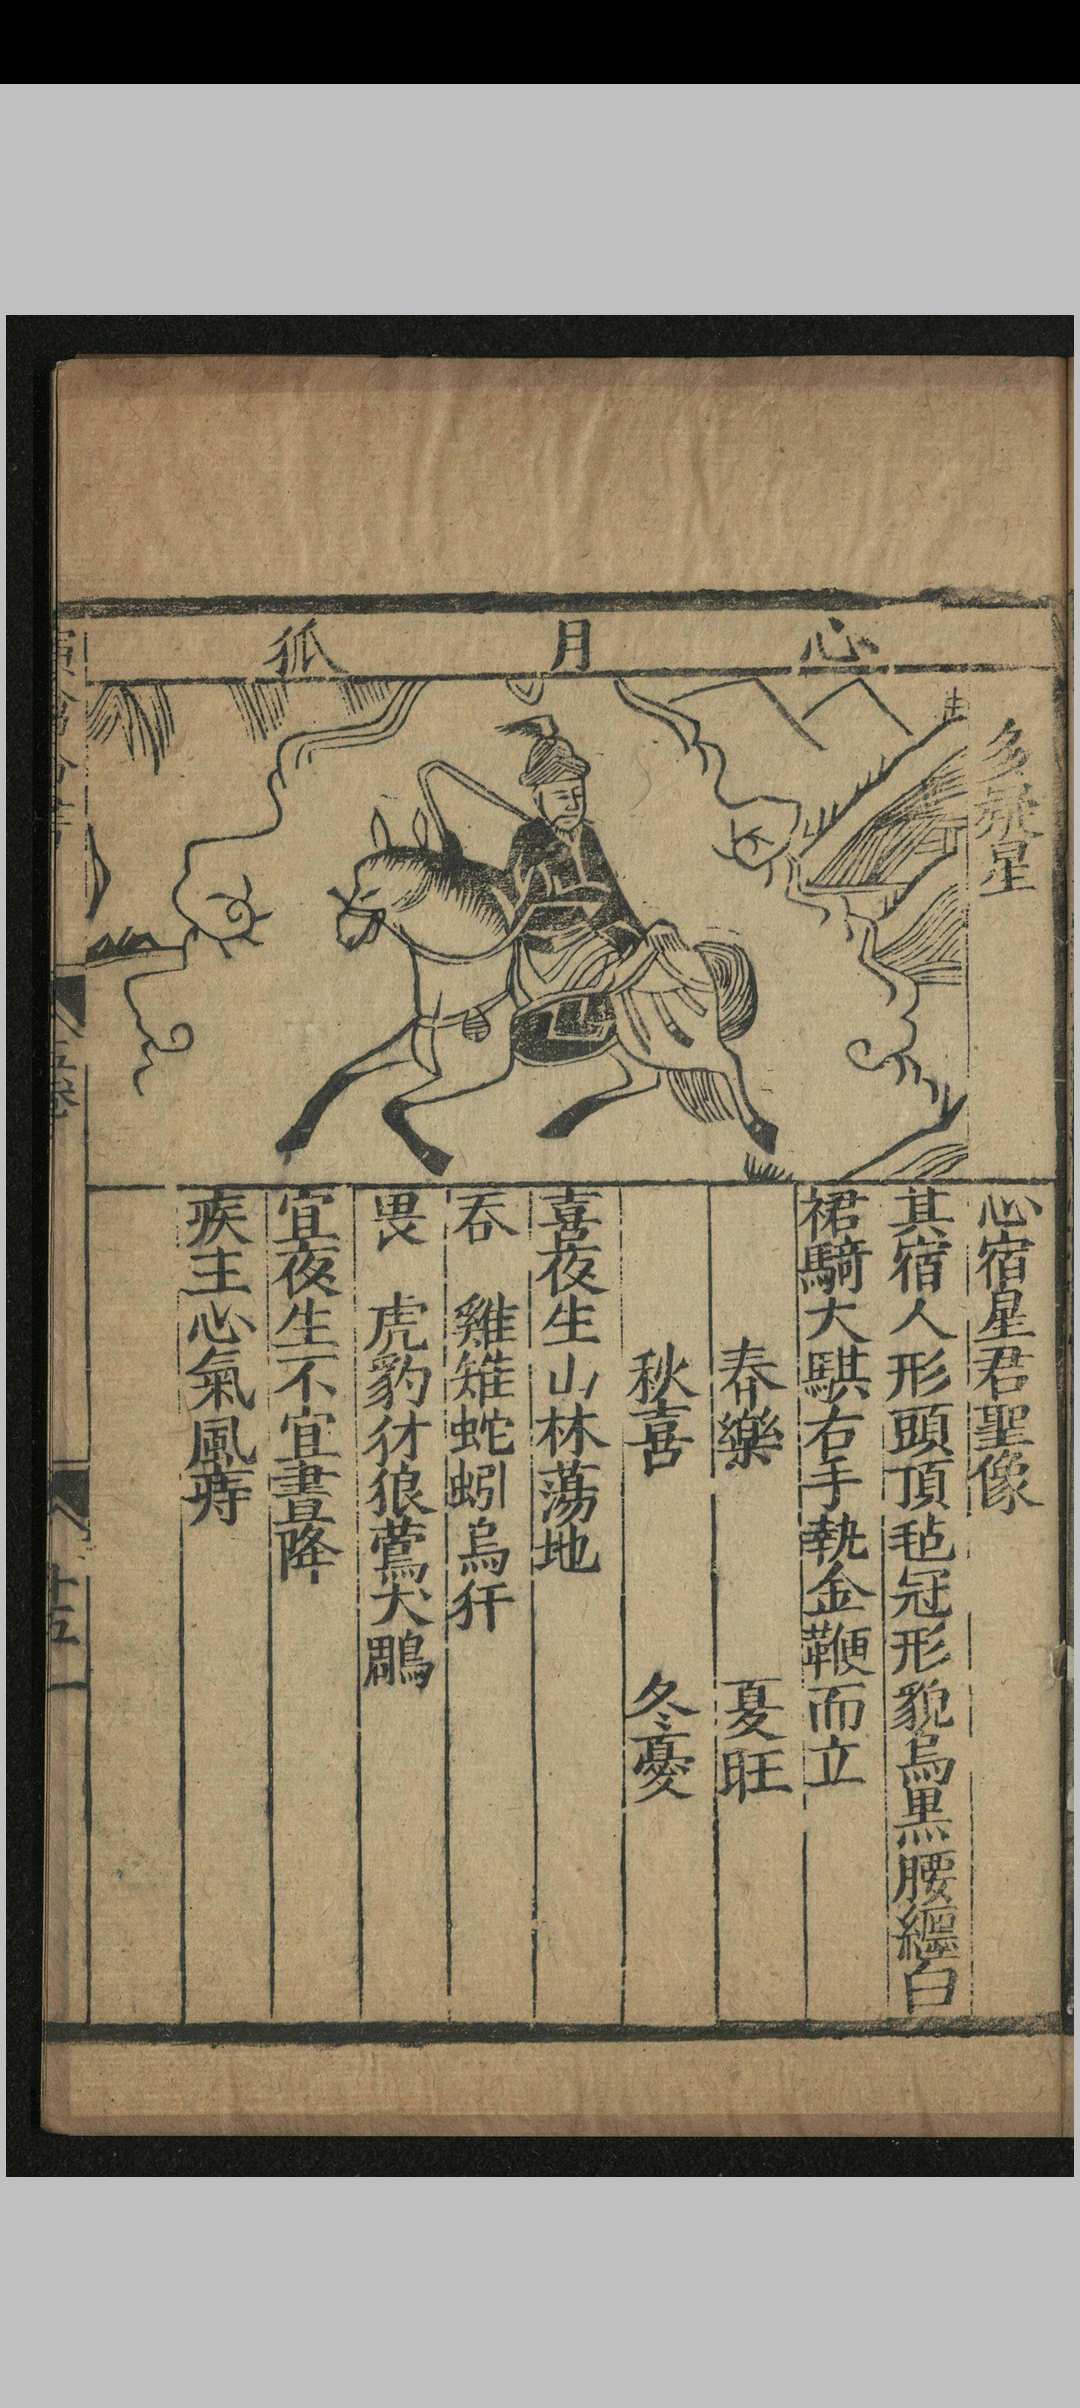 心月狐
多疑星
心宿星君聖像
其宿人形頭頂毡冠形貌烏黑腰纏白
裙騎大騏右手執金鞭而立
春樂 夏旺
秋喜 冬憂
喜夜生山林蕩地
吞 雞雉蛇蚓烏犴
畏 虎豹犲狼鶯犬鵰
宜夜生不宜晝降
疾主心氣風痔
五卷
十五